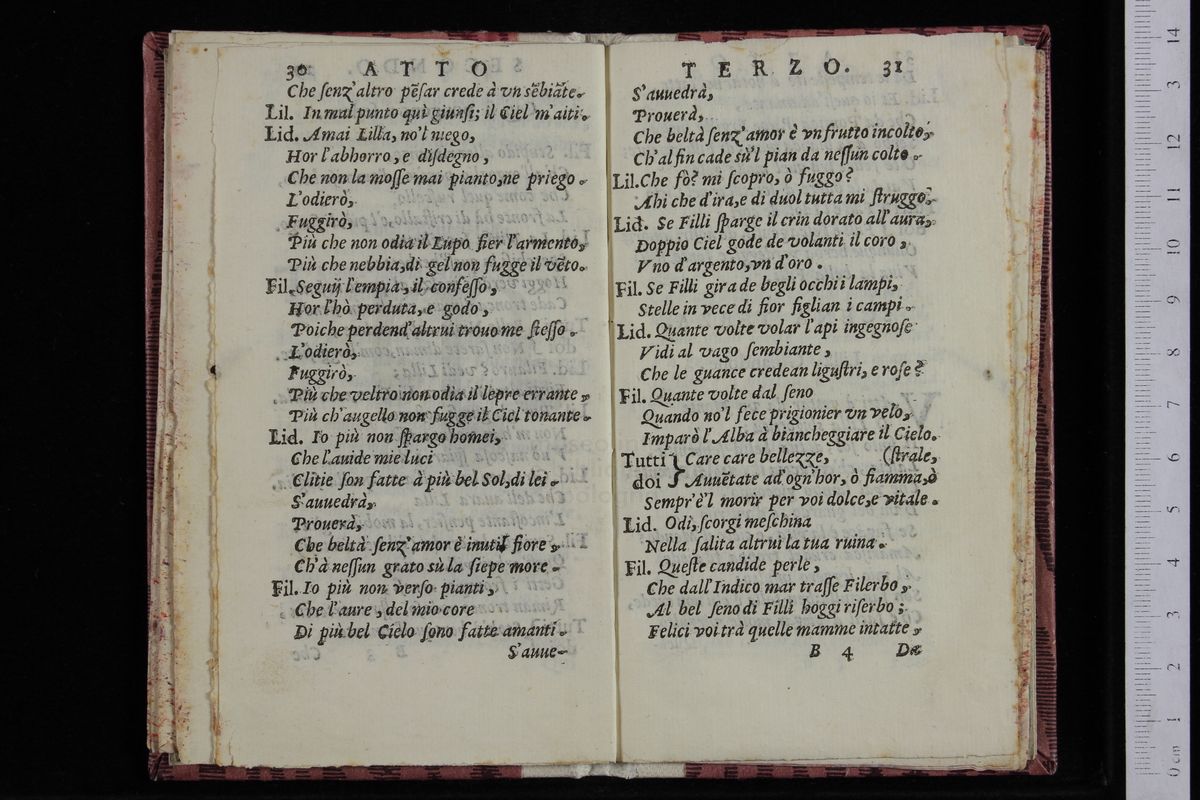 30 ATTO
Che ſenz'altro pẽſar crede à vn sẽbiãte.
Lil. In mal punto quì giunſi; il Ciel m'aiti.
Lid. Amai Lilla, no'l niego,
Hor l'abhorro, e diſdegno,
Che non la moſſe mai pianto, ne priego.
L'odierò,
Fuggirò,
Più che non odia il Lupo fier l'armento,
Più che nebbia, di gel non fugge il vẽto.
Fil. Seguij l'empia, il confeſſo,
Hor l'hò perduta, e godo,
Poiche perdend'altrui trouo me ſteſſo.
L'odierò,
Fuggirò,
Più che veltro non odia il lepre errante,
Più ch'augello non fugge il Ciel tonante.
Lid. Io più non ſpargo homei,
Che l'auide mie luci
Clitie ſon fatte à più bel Sol, di lei.
S'auuedrà,
Prouerà,
Che beltà ſenz'amor è inutil fiore,
Ch'à neſſun grato sù la ſiepe more.
Fil. Io più non verſo pianti,
Che l'aure, del mio core
Di più bel Cielo ſono fatte amanti.
S'auue-
TERZO. 31
S'auuedrà,
Prouerà,
Che beltà ſenz'amor è vn frutto incolto,
Ch'al fin cade sù'l pian da neſſun colto.
Lil. Che fò? mi ſcopro, ò fuggo?
Ahi che d'ira, e di duol tutta mi ſtruggo.
Lid. Se Filli ſparge il crin dorato all'aura,
Doppio Ciel gode de volanti il coro,
Vno d'argento, vn d'oro.
Fil. Se Filli gira de begli occhi i lampi,
Stelle in vece di fior figlian i campi.
Lid. Quante volte volar l'api ingegnoſe
Vidi al vago ſembiante,
Che le guance credean liguſtri, e roſe?
Fil. Quante volte dal ſeno
Quando no'l fece prigionier vn velo,
Imparò l'Alba à biancheggiare il Cielo.
Tutti } Care care bellezze, (ſtrale,
doi } Auuẽtate ad'ogn'hor, ò fiamma, ò
Sempr'è'l morir per voi dolce, e vitale.
Lid. Odi, ſcorgi meſchina
Nella ſalita altrui la tua ruina.
Fil. Queſte candide perle,
Che dall'Indico mar traſſe Filerbo,
Al bel ſeno di Filli hoggi riſerbo;
Felici voi trà quelle mamme intatte,
B 4 Da